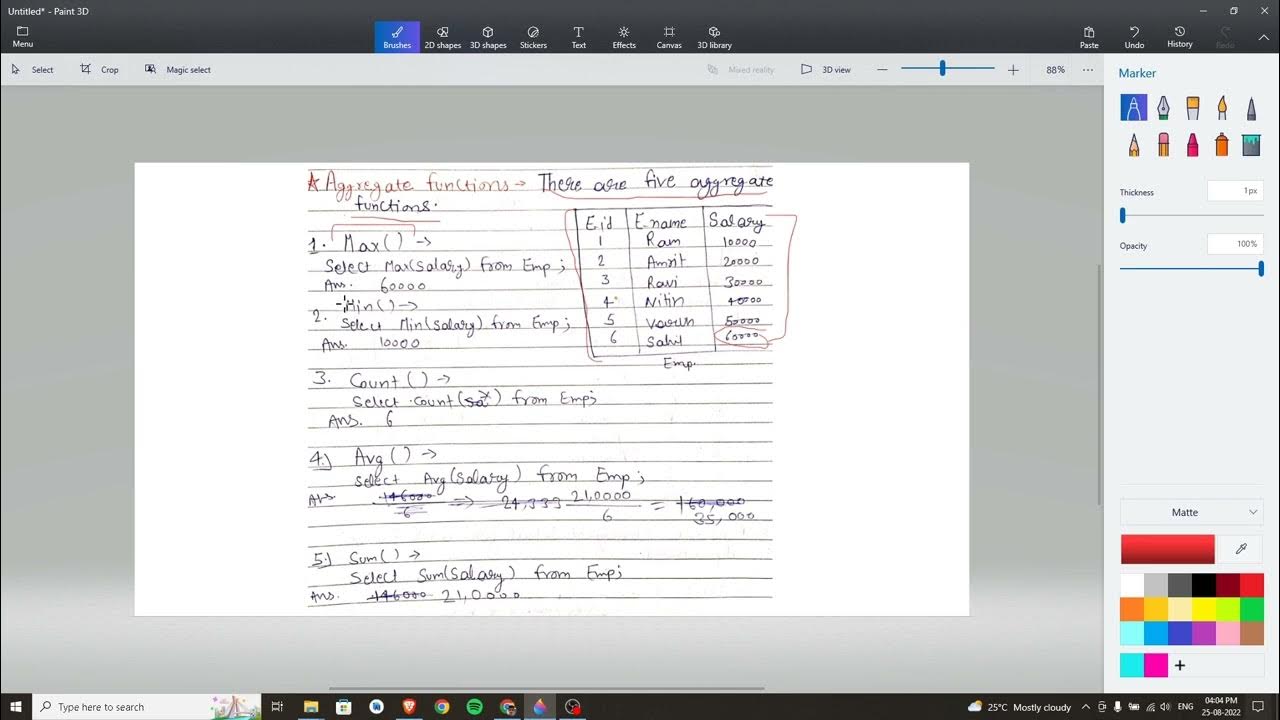 Untitled* - Paint 3D
Menu
Brushes
2D shapes
3D shapes
Stickers
Text
Effects
Canvas
3D library
Paste
Undo
History
Redo
Select
Crop
Magic select
Mixed reality
3D view
88%
Marker
Thickness
1px
Opacity
100%
Matte
Aggregate functions → There are five aggregate
functions.
E.id E.name Salary
1 Ram 10000
2 Amrit 20000
3 Ravi 30000
4 Nitin 40000
5 Varun 50000
6 Sahil 60000
Emp.
1. Max() →
Select Max(salary) from Emp;
Ans. 60000
2. Min() →
Select Min(salary) from Emp;
Ans. 10000
3. Count() →
Select count(*) from Emp;
Ans. 6
4.) Avg() →
Select Avg(salary) from Emp;
Ans. 146000/6 ⇒ 24,333 21,0000/6 = 160,000
35,000
5.) Sum() →
Select Sum(salary) from Emp;
Ans. 146000 21,0000
Type here to search
25°C Mostly cloudy
ENG
04:04 PM
25-08-2022